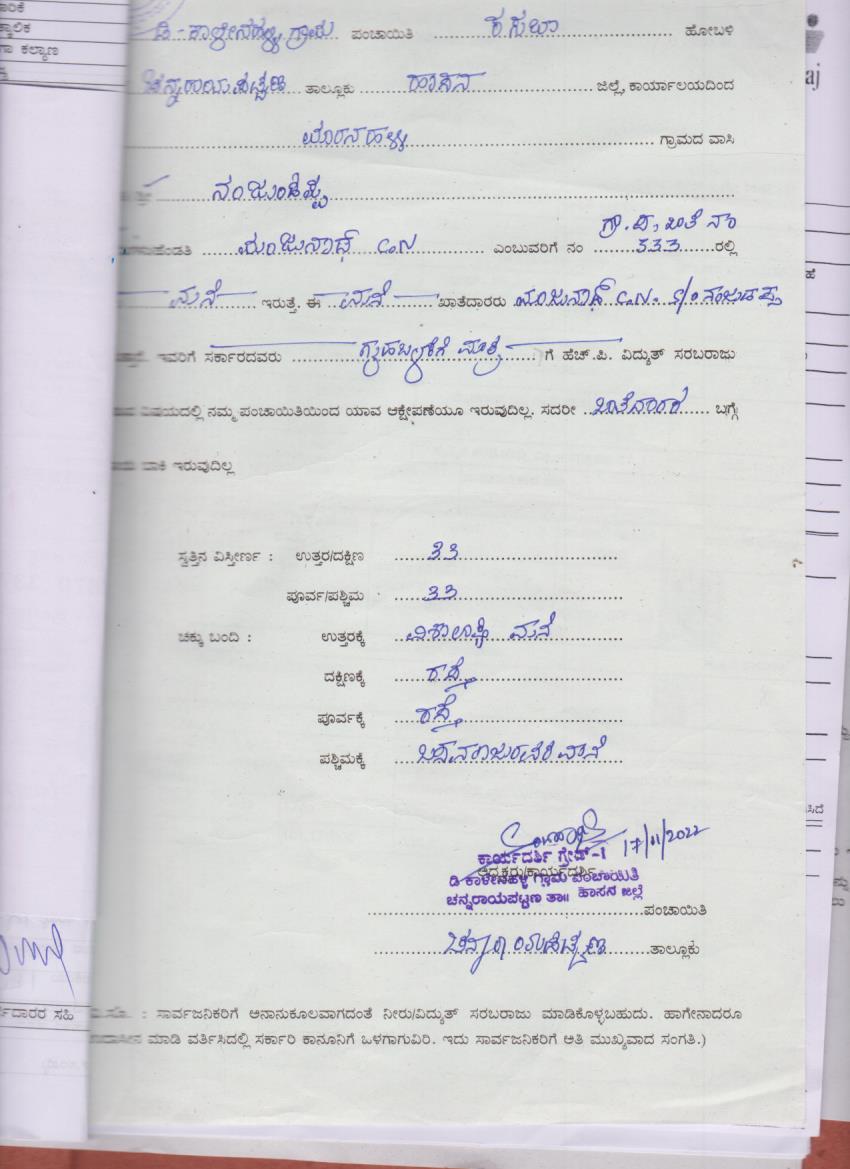 ಡಿ-ಕಾಳೇನಹಳ್ಳಿ ಗ್ರಾಮ ಪಂಚಾಯಿತಿ ಕಸಬಾ ಹೋಬಳಿ
ಚನ್ನರಾಯಪಟ್ಟಣ ತಾಲ್ಲೂಕು ಹಾಸನ ಜಿಲ್ಲೆ, ಕಾರ್ಯಾಲಯದಿಂದ
ಗ್ರಾಮದ ವಾಸಿ
ನಂಜುಂಡಪ್ಪ
ಮಂಜುನಾಥ್ C.N ಎಂಬುವರಿಗೆ ನಂ ಗ್ರಾ.ಪಂ, ಖಾತೆ ನಂ 333 ರಲ್ಲಿ
ಮನೆ ಇರುತ್ತೆ. ಈ ಮನೆ ಖಾತೆದಾರರು ಮಂಜುನಾಥ್ C.N. S/o ನಂಜುಂಡಪ್ಪ
ಇವರಿಗೆ ಸರ್ಕಾರದವರು ಗೃಹಬಳಕೆಗೆ ಮಾತ್ರ ಗೆ ಹೆಚ್.ಪಿ. ವಿದ್ಯುತ್ ಸರಬರಾಜು
ವಿಷಯದಲ್ಲಿ ನಮ್ಮ ಪಂಚಾಯಿತಿಯಿಂದ ಯಾವ ಆಕ್ಷೇಪಣೆಯೂ ಇರುವುದಿಲ್ಲ. ಸದರೀ ಖಾತೆದಾರರ ಬಗ್ಗೆ
ಬಾಕಿ ಇರುವುದಿಲ್ಲ
ಸ್ವತ್ತಿನ ವಿಸ್ತೀರ್ಣ : ಉತ್ತರ/ದಕ್ಷಿಣ 33
ಪೂರ್ವ/ಪಶ್ಚಿಮ 33
ಚಕ್ಕು ಬಂದಿ : ಉತ್ತರಕ್ಕೆ ವಿಶಾಲಾಕ್ಷಿ ಮನೆ
ದಕ್ಷಿಣಕ್ಕೆ ರಸ್ತೆ
ಪೂರ್ವಕ್ಕೆ ರಸ್ತೆ
ಪಶ್ಚಿಮಕ್ಕೆ ಮನೆ
17/11/2022
ಕಾರ್ಯದರ್ಶಿ ಗ್ರೇಡ್-1
ಅಧ್ಯಕ್ಷರು/ಕಾರ್ಯದರ್ಶಿ
ಡಿ ಕಾಳೇನಹಳ್ಳಿ ಗ್ರಾಮ ಪಂಚಾಯಿತಿ
ಚನ್ನರಾಯಪಟ್ಟಣ ತಾ|| ಹಾಸನ ಜಿಲ್ಲೆ
ಪಂಚಾಯಿತಿ
ಚನ್ನರಾಯಪಟ್ಟಣ ತಾಲ್ಲೂಕು
: ಸಾರ್ವಜನಿಕರಿಗೆ ಅನಾನುಕೂಲವಾಗದಂತೆ ನೀರು/ವಿದ್ಯುತ್ ಸರಬರಾಜು ಮಾಡಿಕೊಳ್ಳಬಹುದು. ಹಾಗೇನಾದರೂ
ಮಾಡಿ ವರ್ತಿಸಿದಲ್ಲಿ ಸರ್ಕಾರಿ ಕಾನೂನಿಗೆ ಒಳಗಾಗುವಿರಿ. ಇದು ಸಾರ್ವಜನಿಕರಿಗೆ ಅತಿ ಮುಖ್ಯವಾದ ಸಂಗತಿ.)